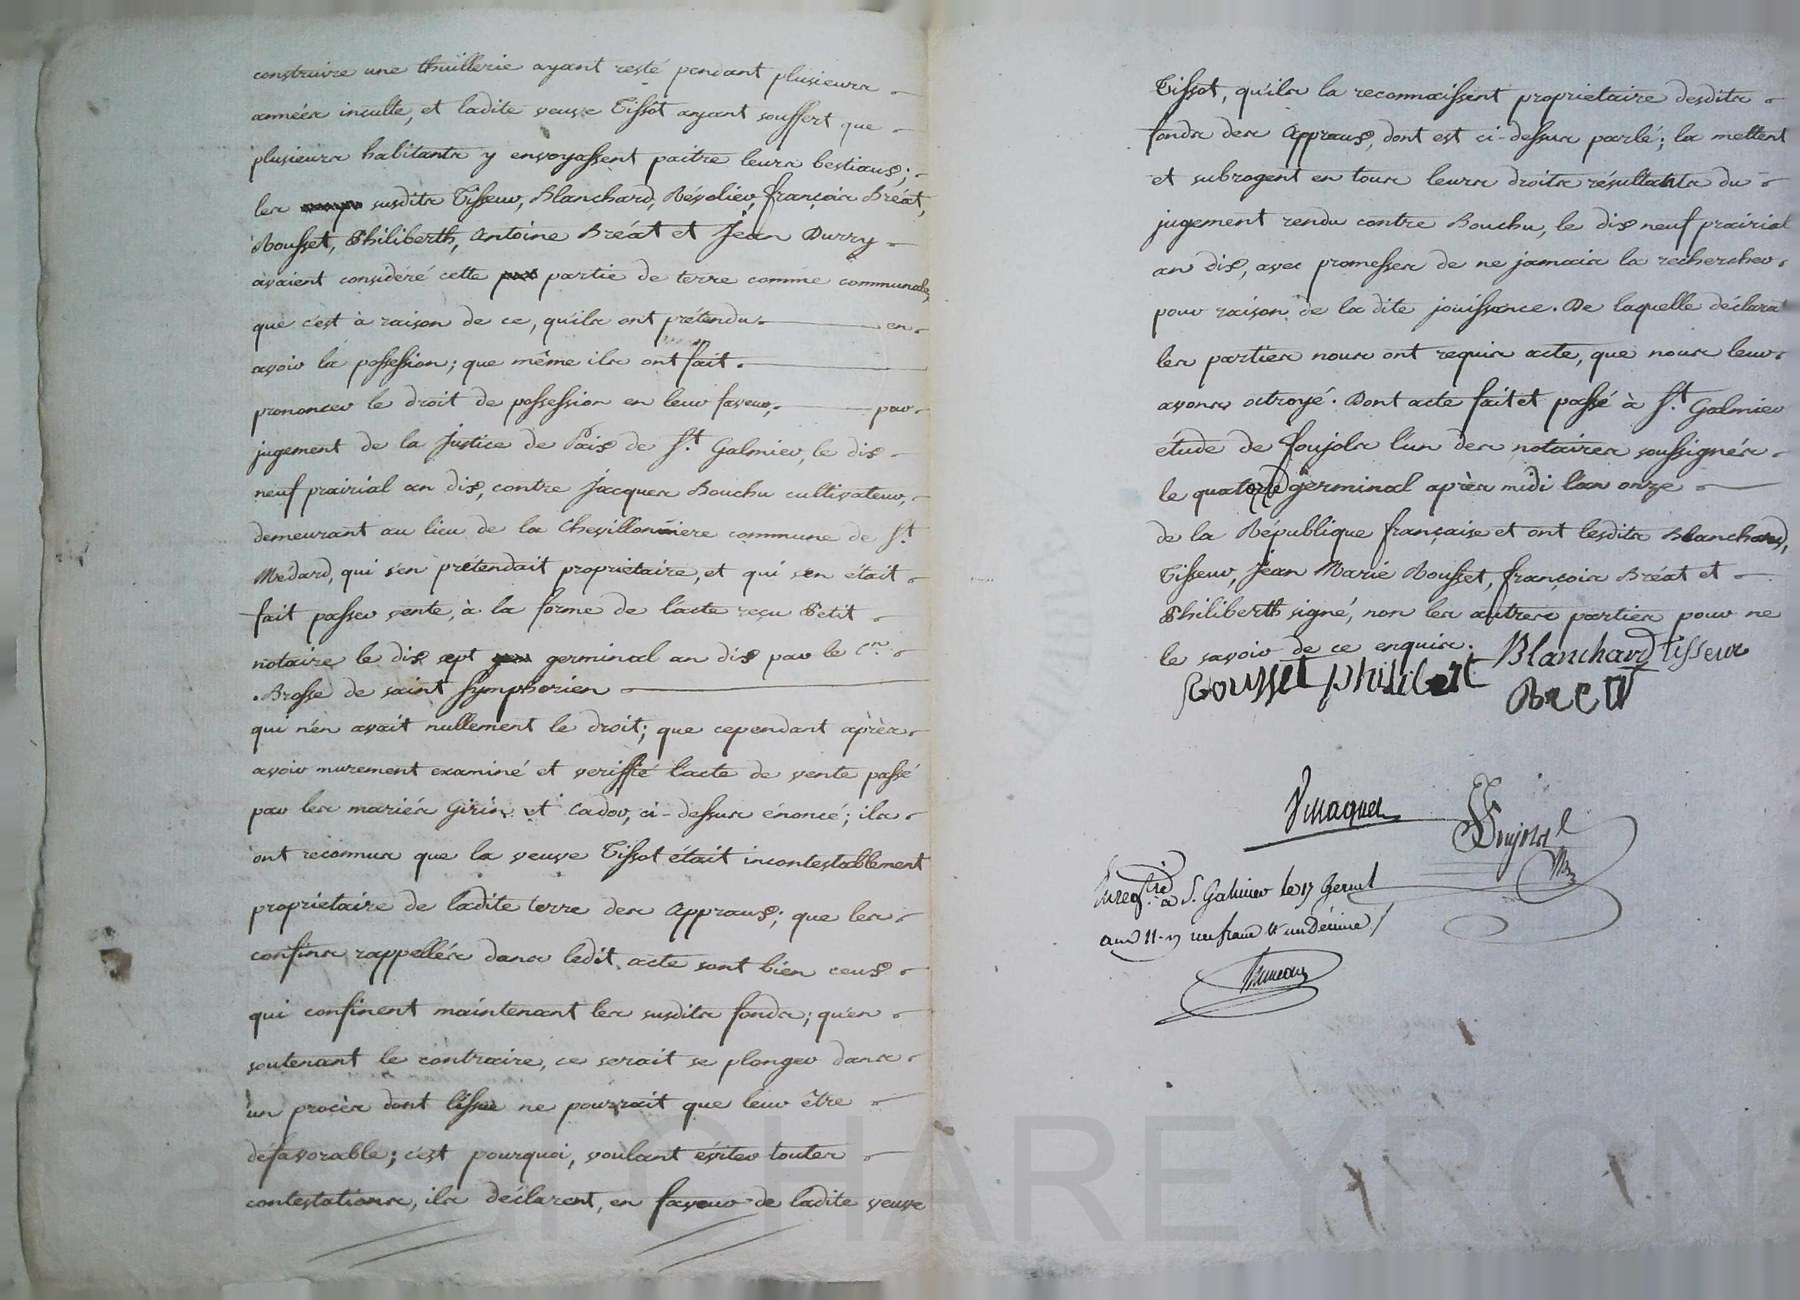 construire une thuillerie ayant resté pendant plusieurs
années inculte, et ladite veuve Tissot ayant souffert que
plusieurs habitants y envoyassent paitre leurs bestiaux;
les susdits Tisseur, Blanchard, Révolier, françois Bréat,
Rousset, Philiberth, Antoine Bréat et Jean Durry
avaient considéré cette partie de terre comme communale,
que c'est à raison de ce, qu'ils ont prétendu en
avoir la possession; que même ils ont fait
prononcer le droit de possession en leur faveur, par
jugement de la Justice de Paix de St. Galmier, le dix
neuf prairial an dix, contre Jacques Bouchu cultivateur,
demeurant au lieu de la Chevillonnière commune de St.
Médard, qui s'en prétendait propriétaire, et qui s'en était
fait passer vente, à la forme de l'acte reçu Petit
notaire le dix sept germinal an dix par le Cen.
Brosse de saint Symphorien
qui n'en avait nullement le droit; que cependant après
avoir murement examiné et veriffié l'acte de vente passé
par les mariés Girin et Cador, ci-dessus énoncé; ils
ont reconnus que la veuve Tissot était incontestablement
propriétaire de ladite terre des Appraux; que les
confins rappellés dans ledit acte sont bien ceux
qui confinent maintenant les susdits fonds; qu'en
soutenant le contraire, ce serait se plonger dans
un procès dont l'issue ne pourrait que leur être
défavorable; c'est pourquoi, voulant éviter toutes
contestations, ils déclarent, en faveur de ladite veuve
Tissot, qu'ils la reconnaissent propriétaire desdits
fonds des Appraux, dont est ci-dessus parlé; la mettent
et subrogent en tous leurs droits résultants du
jugement rendu contre Bouchu, le dix neuf prairial
an dix, avec promesses de ne jamais la rechercher
pour raison de la dite jouissance. De laquelle déclarat
les parties nous ont requis acte, que nous leur
avons octroyé. Dont acte fait et passé à St. Galmier
étude de Foujols l'un des notaires soussignés
le quatorze germinal après midi l'an onze
de la République française et ont lesdits Blanchard,
Tisseur, Jean Marie Rousset, françois Bréat et
Philiberth signé, non les autres parties pour ne
le savoir de ce enquis. Blanchard tisseur
Rousset philibert Breat
Enregtré à St. Galmier le 17 Germl
an 11 un franc et un décime
Pascal CHAREYRON